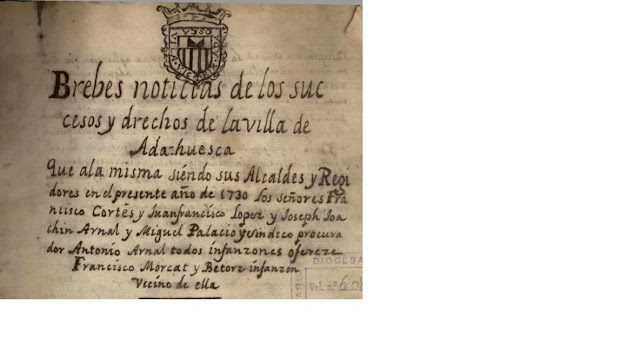 Brebes noticias de los suc
cesos y drechos de la villa de
Ada-huesca
Que ala misma siendo sus Alcaldes y Regi
dores en el presente año de 1730 Los señores Fra
ncisco Cortés y Juanfrancisco Lopez y Joseph Joa
chin Arnal y Miguel Palacio y Sindico procura
dor Antonio Arnal todos infanzones ofereze
Francisco Morcat y Betorz infanzon
Vecino de ella
DIOCESA
Vol. n.º